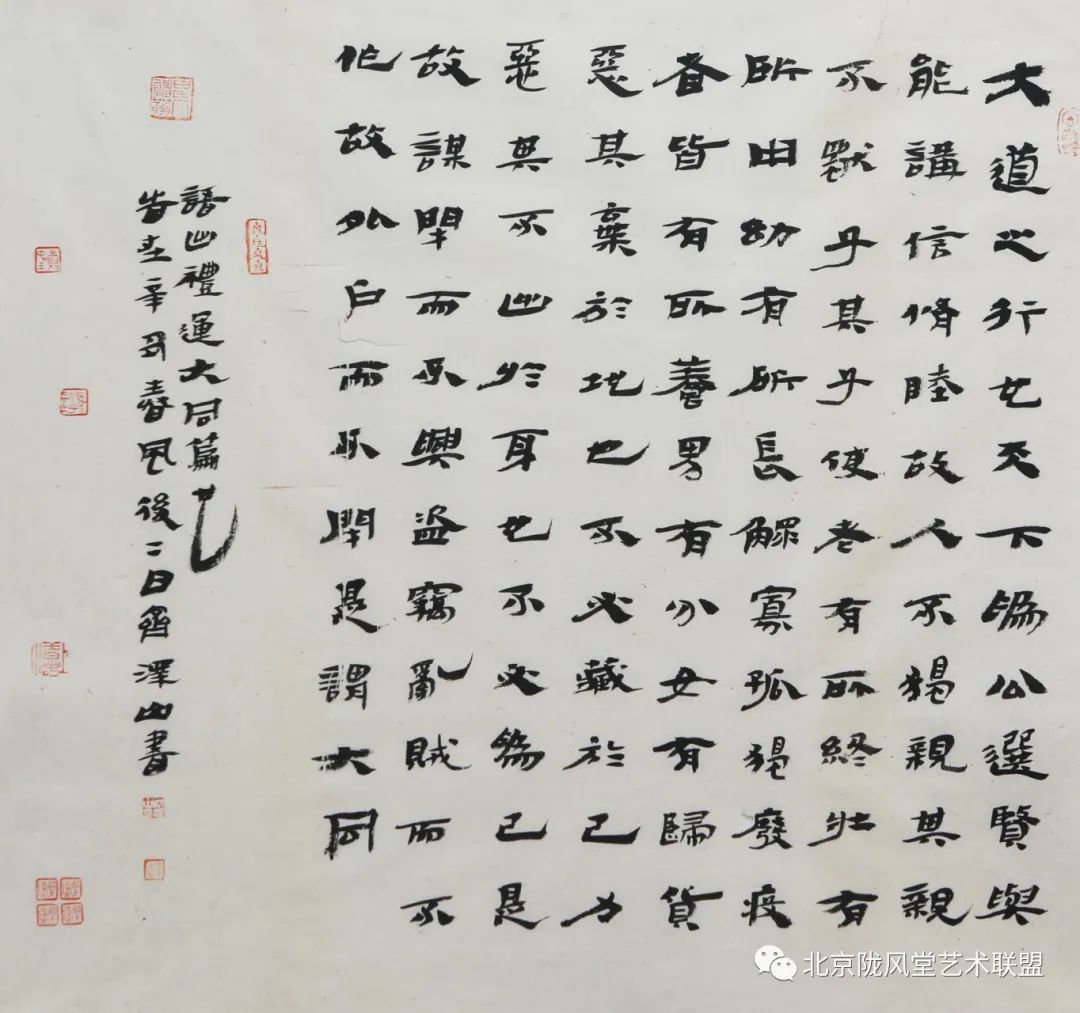 大道之行也天下為公選賢與
能講信脩睦故人不獨親其親
不獨子其子使老有所終壯有
所用幼有所長鰥寡孤獨廢疾
者皆有所養男有分女有歸貨
惡其棄於地也不必藏於己力
惡其不出於身也不必為己是
故謀閉而不興盜竊亂賊而不
作故外戶而不閉是謂大同
語出禮運大同篇也
旹在辛丑春風後二日齊澤山書
北京陇风堂艺术联盟